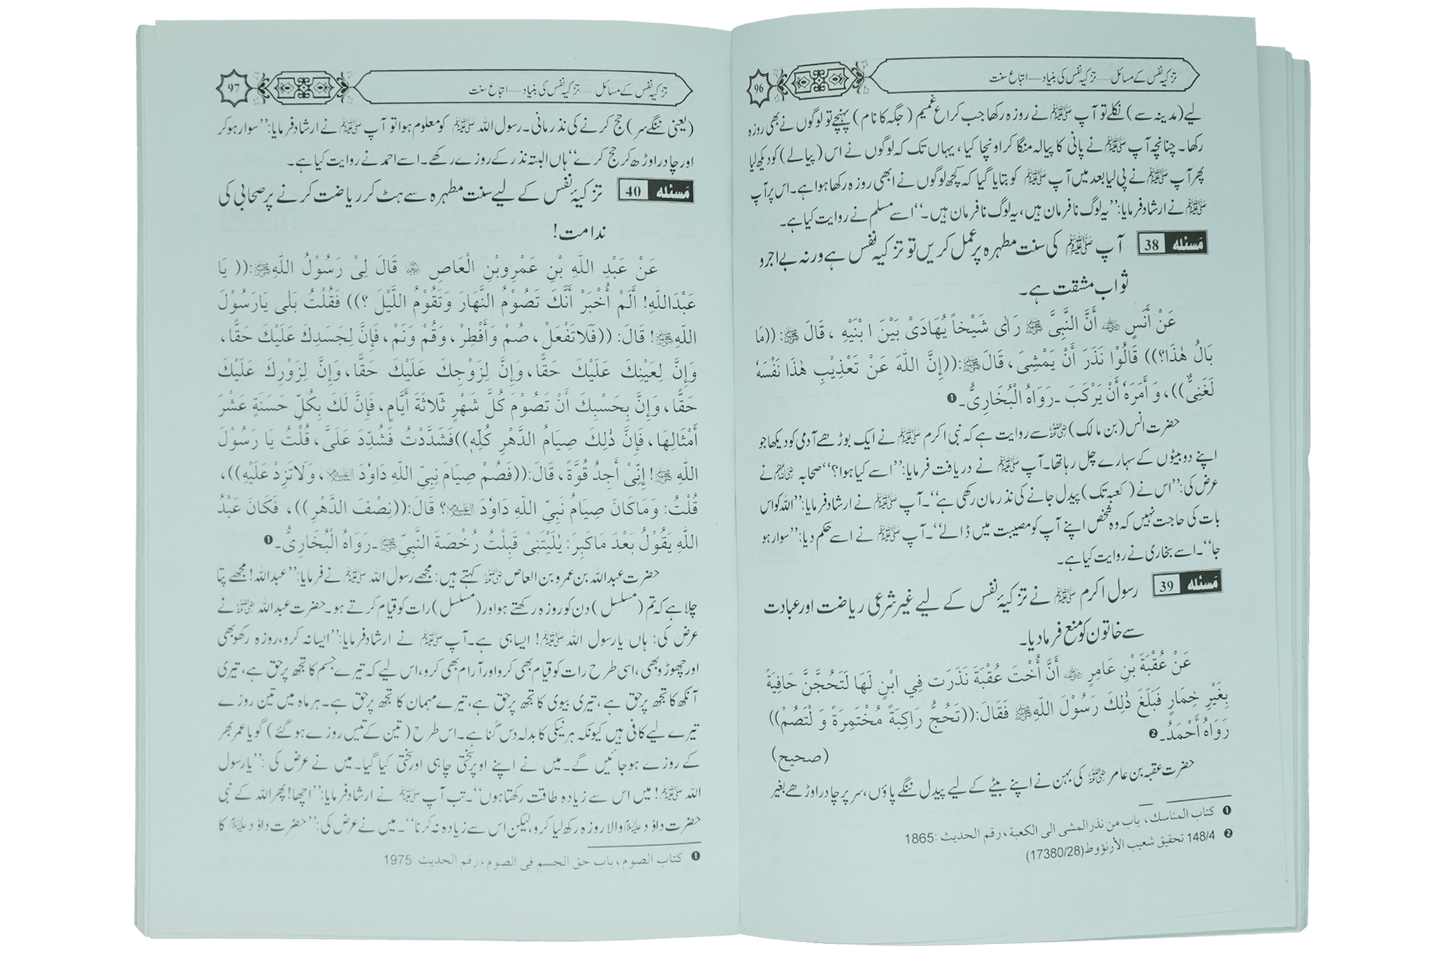 تزکیۂ نفس کے مسائل..... تزکیۂ نفس کی بنیاد—اتباع سنت
96
لیے (مدینہ سے) نکلے تو آپ ﷺ نے روزہ رکھا جب کراع غمیم (جگہ کا نام) پہنچے تو لوگوں نے بھی روزہ
رکھا۔ چنانچہ آپ ﷺ نے پانی کا پیالہ منگا کر اونچا کیا، یہاں تک کہ لوگوں نے اس (پیالے) کو دیکھ لیا
پھر آپ ﷺ نے پی لیا بعد میں آپ ﷺ کو بتایا گیا کہ کچھ لوگوں نے ابھی روزہ رکھا ہوا ہے۔ اس پر آپ
ﷺ نے ارشاد فرمایا: ’’یہ لوگ نافرمان ہیں، یہ لوگ نافرمان ہیں۔‘‘ اسے مسلم نے روایت کیا ہے۔
مسئله 38 آپ ﷺ کی سنت مطہرہ پر عمل کریں تو تزکیہ نفس ہے ورنہ بے اجر و
ثواب مشقت ہے۔
عَنْ أَنَسٍ ؓ أَنَّ النَّبِيَّ ﷺ رَاى شَيْخاً يُهَادَى بَيْنَ ابْنَيْهِ ، قَالَ ﷺ: ((مَا
بَالُ هٰذَا؟)) قَالُوْا نَذَرَ أَنْ يَمْشِىَ، قَالَ ﷺ: ((إِنَّ اللّٰهَ عَنْ تَعْذِيْبِ هٰذَا نَفْسَهُ
لَغَنِىٌّ))، وَ أَمَرَهُ أَنْ يَرْكَبَ ۔ رَوَاهُ الْبُخَارِيُّ۔ ❶
حضرت انس (بن مالک) ؓ سے روایت ہے کہ نبی اکرم ﷺ نے ایک بوڑھے آدمی کو دیکھا جو
اپنے دو بیٹوں کے سہارے چل رہا تھا۔ آپ ﷺ نے دریافت فرمایا: ’’اسے کیا ہوا؟‘‘ صحابہ ؓ نے
عرض کی: ’’اس نے (کعبہ تک) پیدل جانے کی نذر مان رکھی ہے‘‘۔ آپ ﷺ نے ارشاد فرمایا: ’’اللہ کو اس
بات کی حاجت نہیں کہ وہ شخص اپنے آپ کو مصیبت میں ڈالے‘‘۔ آپ ﷺ نے اسے حکم دیا: ’’سوار ہو
جا‘‘۔ اسے بخاری نے روایت کیا ہے۔
مسئله 39 رسول اکرم ﷺ نے تزکیۂ نفس کے لیے غیر شرعی ریاضت اور عبادت
سے خاتون کو منع فرما دیا۔
عَنْ عُقْبَةَ بْنِ عَامِرٍ ؓ أَنَّ أُخْتَ عُقْبَةَ نَذَرَت فِي ابْنٍ لَهَا لَتَحُجَّنَّ حَافِيَةً
بِغَيْرِ خِمَارٍ فَبَلَغَ ذٰلِكَ رَسُوْلَ اللّٰهِ ﷺ فَقَالَ: ((تَحُجُّ رَاكِبَةً مُخْتَمِرَةً وَ لْتَصُمْ))
رَوَاهُ أَحْمَدُ۔ ❷
(صحيح)
حضرت عقبہ بن عامر ؓ کی بہن نے اپنے بیٹے کے لیے پیدل ننگے پاؤں، سر پر چادر اوڑھے بغیر
❶ كتاب المناسك، باب من نذر المشى الى الكعبة، رقم الحديث :1865
❷ 148/4 تحقيق شعيب الأرنؤوط(17380/28)
تزکیۂ نفس کے مسائل..... تزکیۂ نفس کی بنیاد—اتباع سنت
97
(یعنی ننگے سر) حج کرنے کی نذر مانی۔ رسول اللہ ﷺ کو معلوم ہوا تو آپ ﷺ نے ارشاد فرمایا: ’’سوار ہو کر
اور چادر اوڑھ کر حج کرے‘‘ ہاں البتہ نذر کے روزے رکھے۔ اسے احمد نے روایت کیا ہے۔
مسئله 40 تزکیۂ نفس کے لیے سنت مطہرہ سے ہٹ کر ریاضت کرنے پر صحابی کی
ندامت!
عَنْ عَبْدِ اللّٰهِ بْنِ عَمْرِوبْنِ الْعَاصِ ؓ قَالَ لِىْ رَسُوْلُ اللّٰهِ ﷺ: (( يَا
عَبْدَاللّٰهِ! أَلَمْ أُخْبَرْ أَنَّكَ تَصُوْمُ النَّهَارَ وَتَقُوْمُ اللَّيْلَ ؟)) فَقُلْتُ بَلٰى يَارَسُوْلَ
اللّٰهِ ﷺ! قَالَ: ((فَلَاتَفْعَلْ، صُمْ وَأَفْطِرْ، وَقُمْ وَنَمْ، فَإِنَّ لِجَسَدِكَ عَلَيْكَ حَقًّا،
وَإِنَّ لِعَيْنِكَ عَلَيْكَ حَقًّا، وَإِنَّ لِزَوْجِكَ عَلَيْكَ حَقًّا، وَإِنَّ لِزَوْرِكَ عَلَيْكَ
حَقًّا، وَإِنَّ بِحَسْبِكَ أَنْ تَصُوْمَ كُلَّ شَهْرٍ ثَلَاثَةَ أَيَّامٍ، فَإِنَّ لَكَ بِكُلِّ حَسَنَةٍ عَشْرَ
أَمْثَالِهَا، فَإِنَّ ذٰلِكَ صِيَامُ الدَّهْرِ كُلِّهِ)) فَشَدَّدْتُ فَشُدِّدَ عَلَىَّ، قُلْتُ يَا رَسُوْلَ
اللّٰهِ ﷺ! إِنِّىْ أَجِدُ قُوَّةً، قَالَ: ((فَصُمْ صِيَامَ نَبِيِّ اللّٰهِ دَاوٗدَ، وَلَاتَزِدْ عَلَيْهِ))،
قُلْتُ: وَمَاكَانَ صِيَامُ نَبِيِّ اللّٰهِ دَاوٗدَ؟ قَالَ: ((نِصْفَ الدَّهْرِ))، فَكَانَ عَبْدُ
اللّٰهِ يَقُوْلُ بَعْدَ مَاكَبِرَ: يٰلَيْتَنِىْ قَبِلْتُ رُخْصَةَ النَّبِيِّ ﷺ۔ رَوَاهُ الْبُخَارِيُّ۔ ❶
حضرت عبداللہ بن عمرو بن العاص ؓ کہتے ہیں: مجھے رسول اللہ ﷺ نے فرمایا: ’’عبداللہ! مجھے پتا
چلا ہے کہ تم (مسلسل) دن کو روزہ رکھتے ہو اور (مسلسل) رات کو قیام کرتے ہو۔ حضرت عبداللہ ؓ نے
عرض کی: ہاں یارسول اللہ ﷺ! ایسا ہی ہے۔ آپ ﷺ نے ارشاد فرمایا: ’’ایسا نہ کرو، روزہ رکھو بھی
اور چھوڑو بھی، اسی طرح رات کو قیام بھی کرو اور آرام بھی کرو، اس لیے کہ تیرے جسم کا تجھ پر حق ہے، تیری
آنکھ کا تجھ پر حق ہے، تیری بیوی کا تجھ پر حق ہے، تیرے مہمان کا تجھ پر حق ہے۔ ہر ماہ میں تین روزے
تیرے لیے کافی ہیں کیونکہ ہر نیکی کا بدلہ دس گنا ہے۔ اس طرح (تین کے تیس روزے ہو گئے) گویا عمر بھر
کے روزے ہو جائیں گے۔ میں نے اپنے اوپر سختی چاہی اور سختی کیا گیا۔ میں نے عرض کی: ’’یارسول
اللہ ﷺ! میں اس سے زیادہ طاقت رکھتا ہوں‘‘۔ تب آپ ﷺ نے ارشاد فرمایا: ’’اچھا! پھر اللہ کے نبی
حضرت داؤد ؑ والا روزہ رکھ لیا کرو، لیکن اس سے زیادہ نہ کرنا‘‘۔ میں نے عرض کی: ’’حضرت داؤد ؑ کا
❶ كتاب الصوم، باب حق الجسم فى الصوم، رقم الحديث :1975